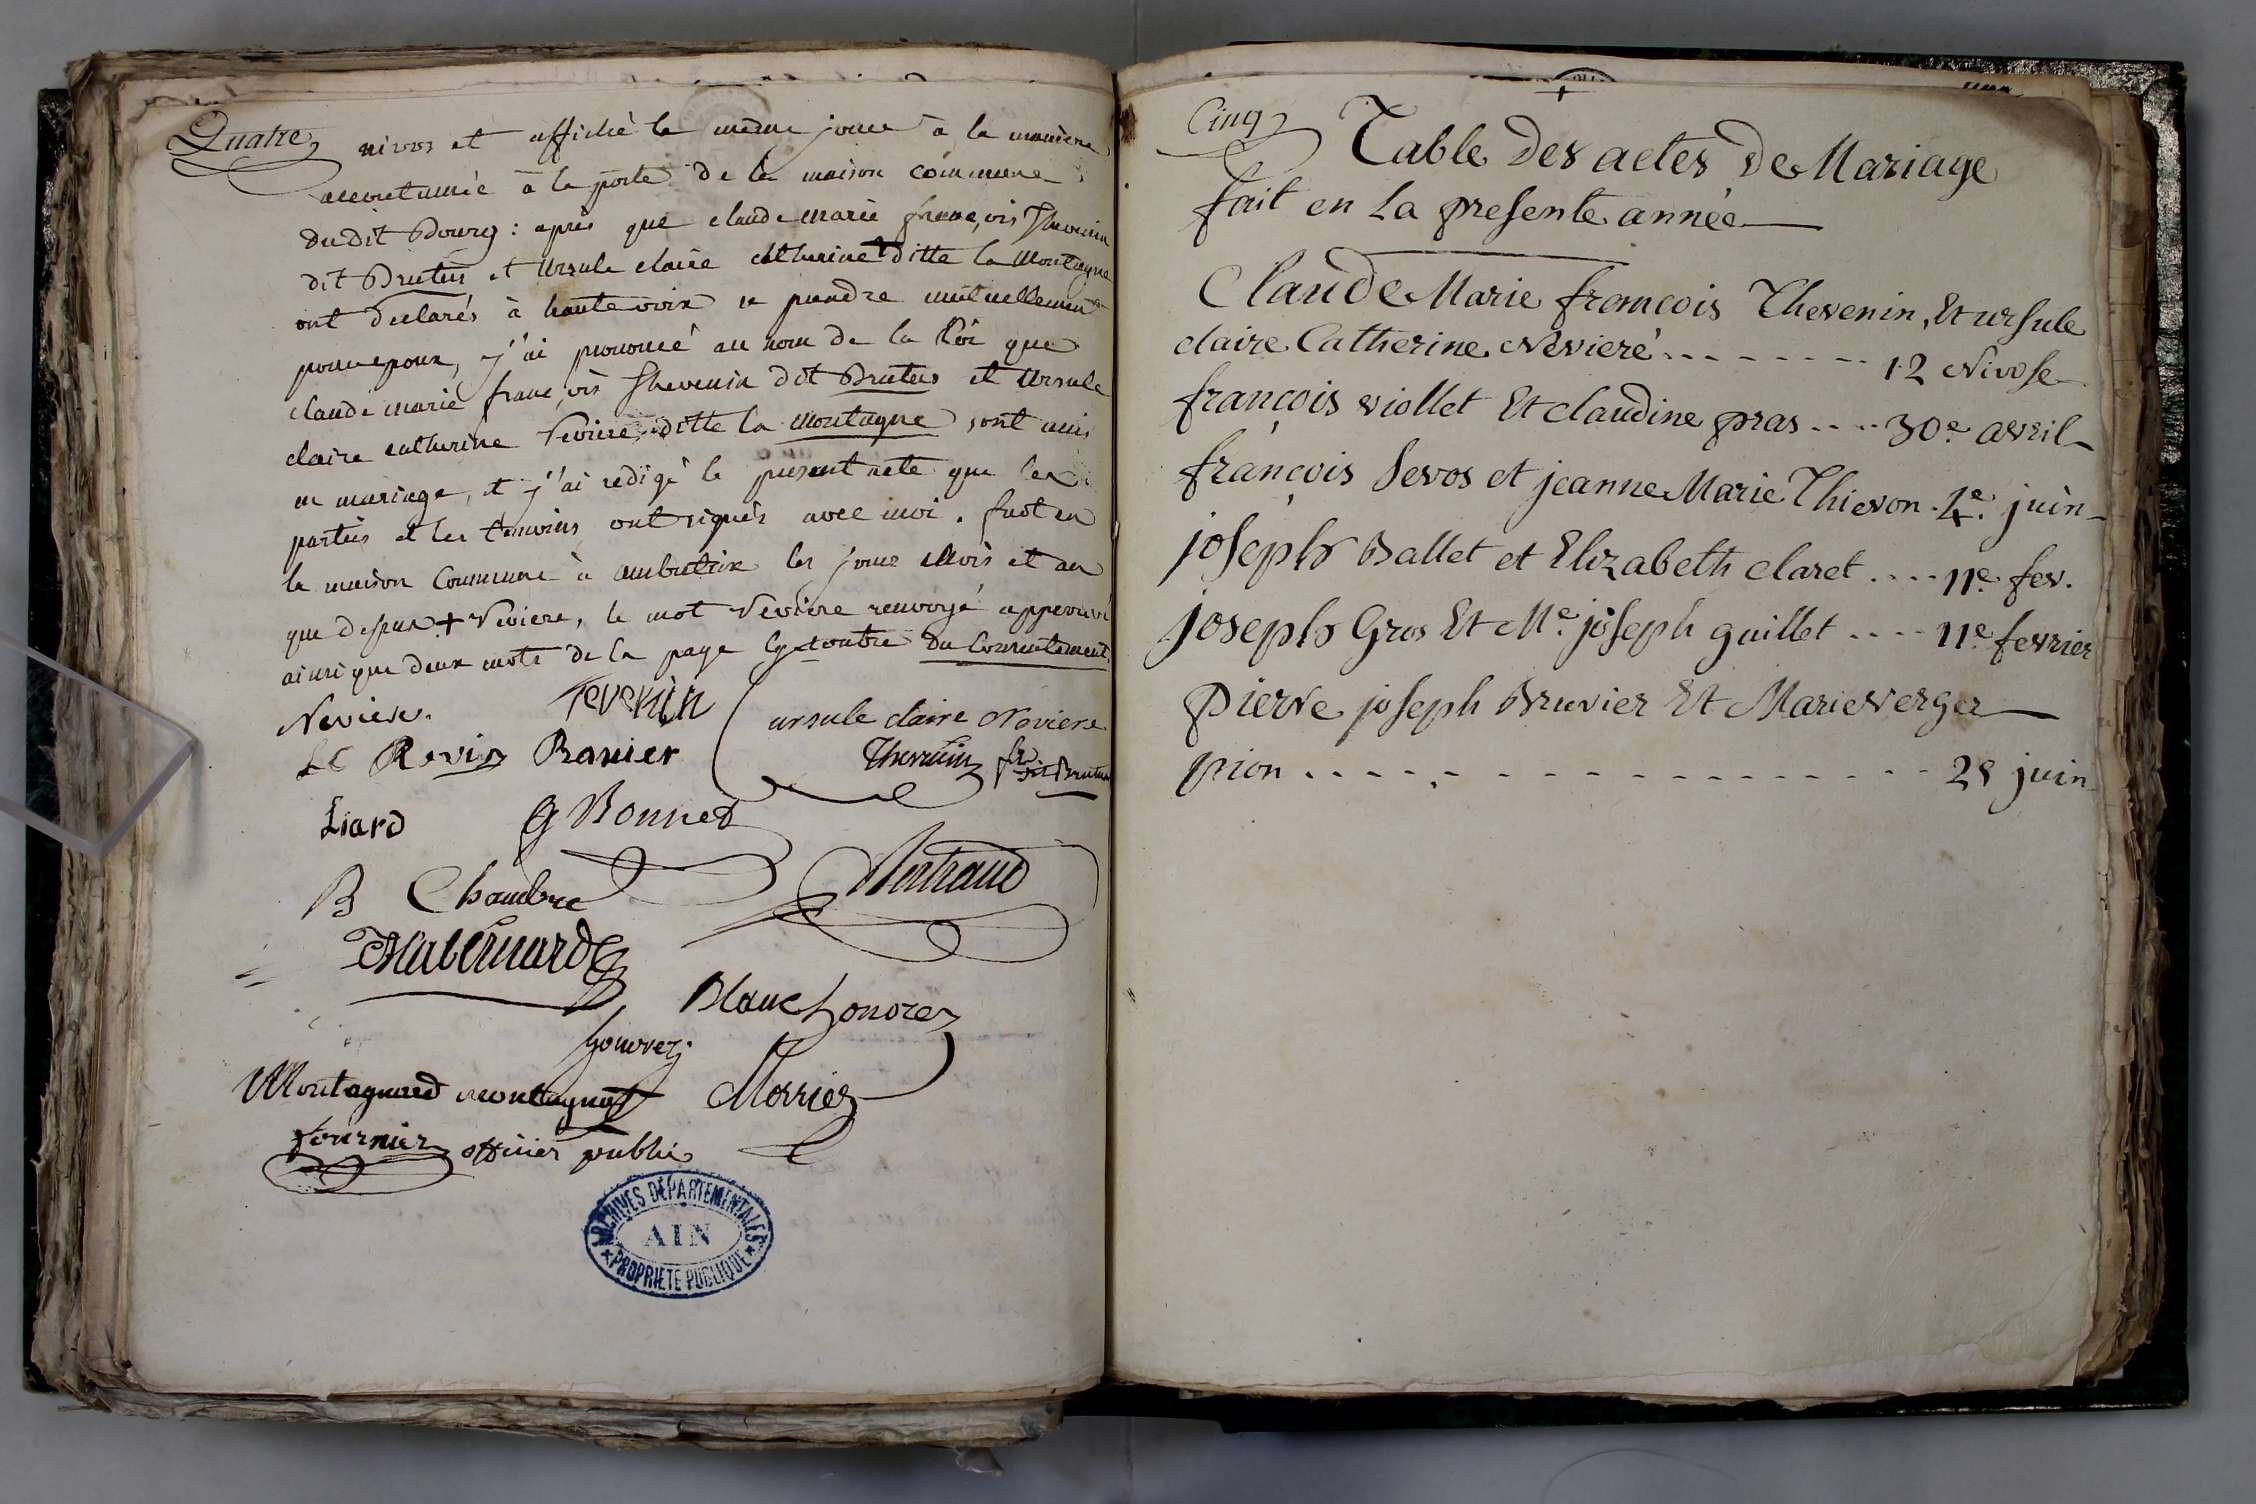 Quatre
nivos et affiché le même jour à la manière
accoutumée à la porte de la maison commune
dudit Bourg : après que claude marie françois Thevenin
dit Brutus et Ursule claire catherine + ditte la Montagne
ont déclarés à haute voix se prendre mutuellement
pour epoux, j'ai prononcé au nom de la Loi que
claude marie françois Thevenin dit Brutus et Ursule
claire catherine Neviere ditte la Montagne sont unis
en mariage, et j'ai redigé le present acte que les
parties et les temoins ont signés avec moi. fait en
la maison Commune à ambutrix les jour Mois et an
que dessus + Neviere, le mot Neviere renvoyé approuvé
ainsi que deux mots de la page cy contre du Consentement
Neviere. Tevenin ursule claire Neviere
Revis Ravier Thevenin fr dit Brutus
Liard G Bonnet
B Chambre Bertrand
Blanc honorez
gouvrez
Montagnard Montagnat Morrier
fournier officier public
ARCHIVES DÉPARTEMENTALES
AIN
PROPRIÉTÉ PUBLIQUE
Cinq
Table Des actes De Mariage
fait en La presente année
Claude Marie francois Thevenin, Et ursule
claire Catherine Nevieré - - - - - - - - 12 Nivose
françois viollet Et claudine pras - - - - 30e. avril
françois Sevos et jeanne Marie Thievon . 4e. juin
joseph Ballet et Elizabeth claret . . . . 11e. fev.
joseph Gros Et Me. joseph guillet . . . . 11e. fevrier
pierre joseph Bruvier Et Marie verger
pion . . . - - . - - - - - - - - - - - - - 28 juin